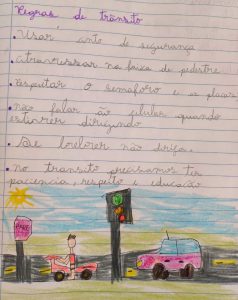 Regras de trânsito
• Usar cinto de segurança
• Atravessar na faixa de pedestre
• respeitar o semaforo e as placas
• não falar no celular quando
estiver dirigindo
• Se beber não dirija.
• no transito precisamos ter
paciencia, respeito e educação
PARE